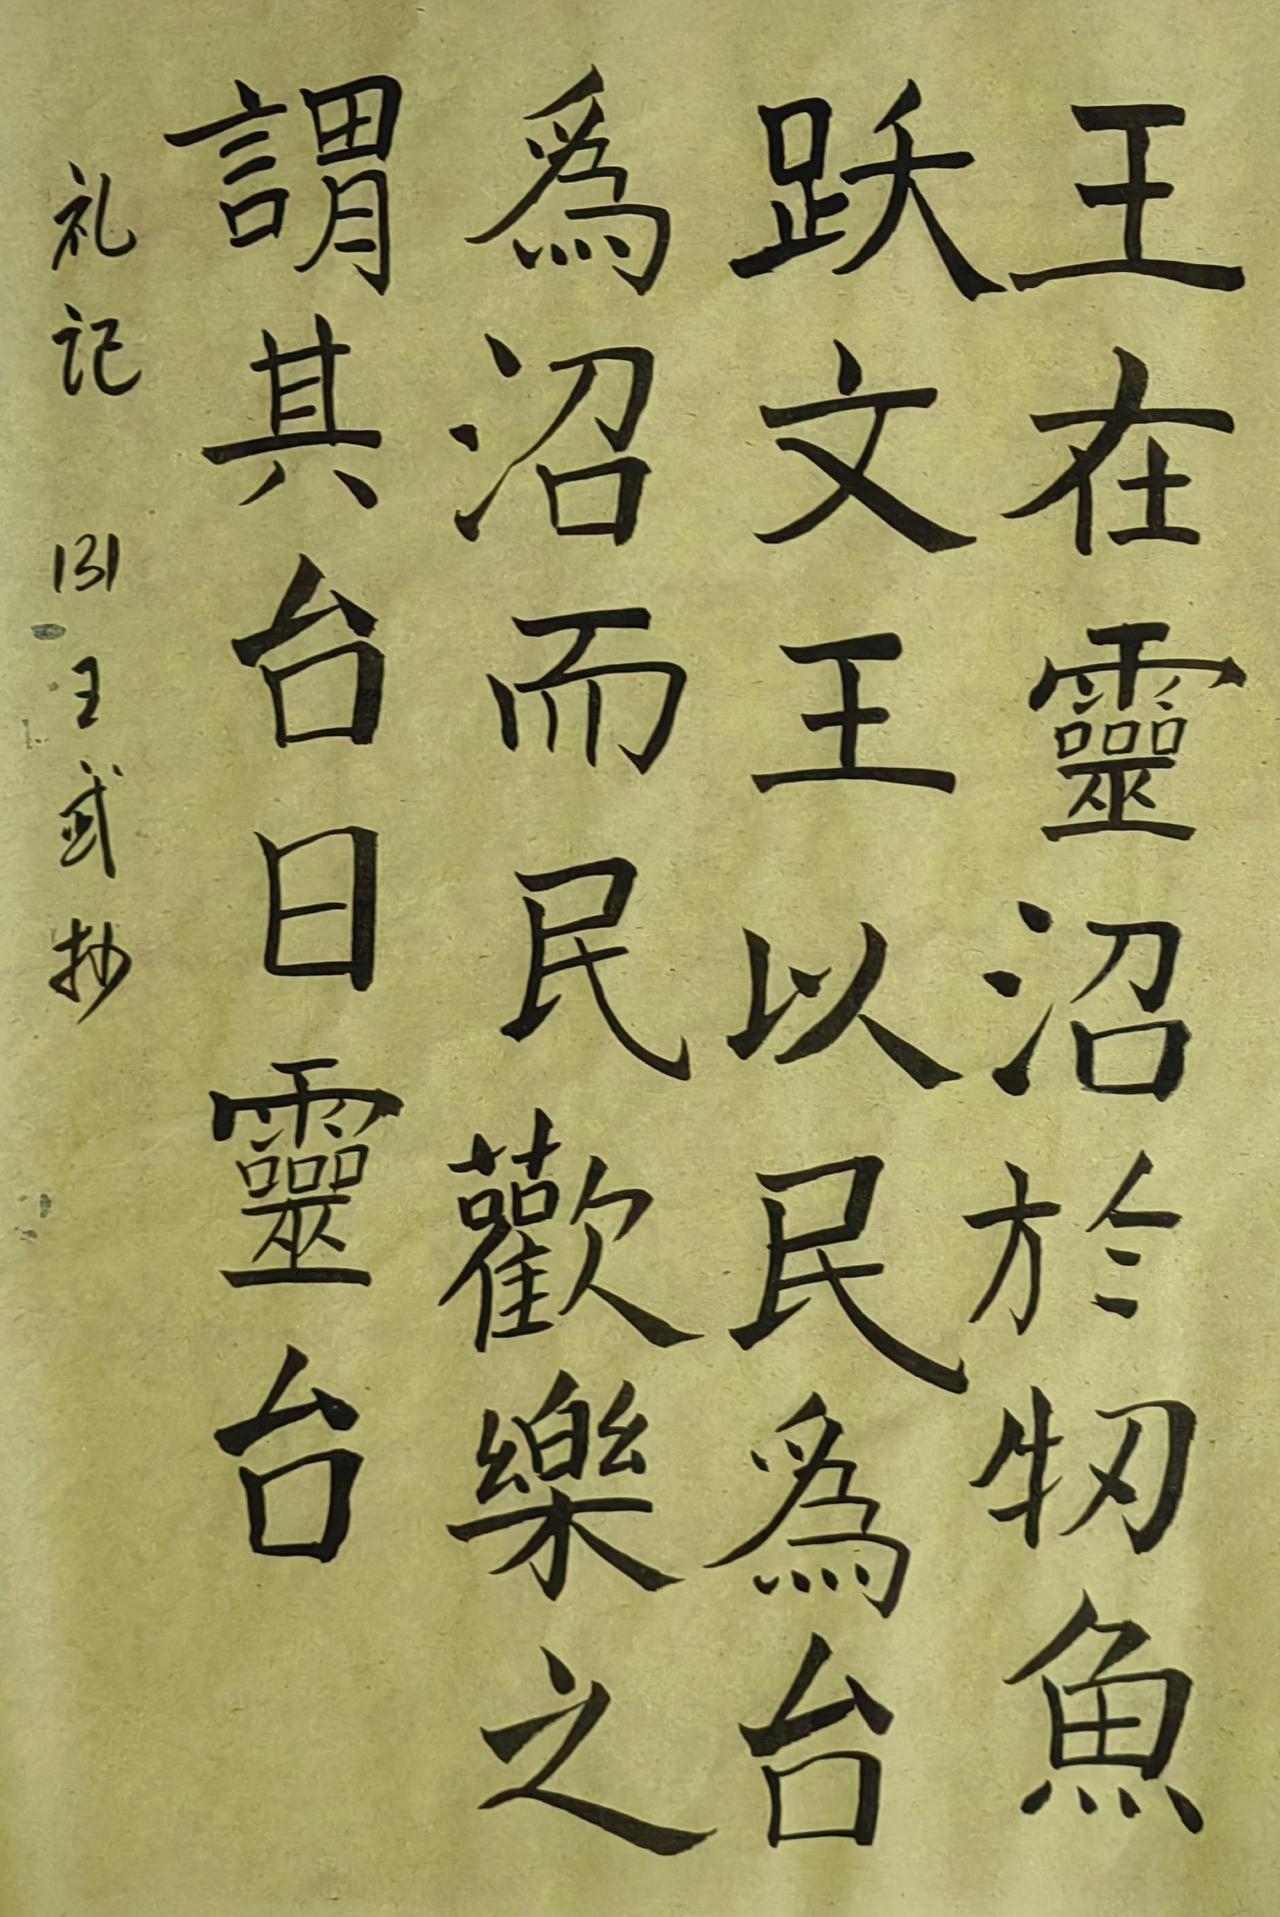 王在靈沼於牣魚
跃文王以民為台
為沼而民歡樂之
謂其台曰靈台
礼记 131 王武抄